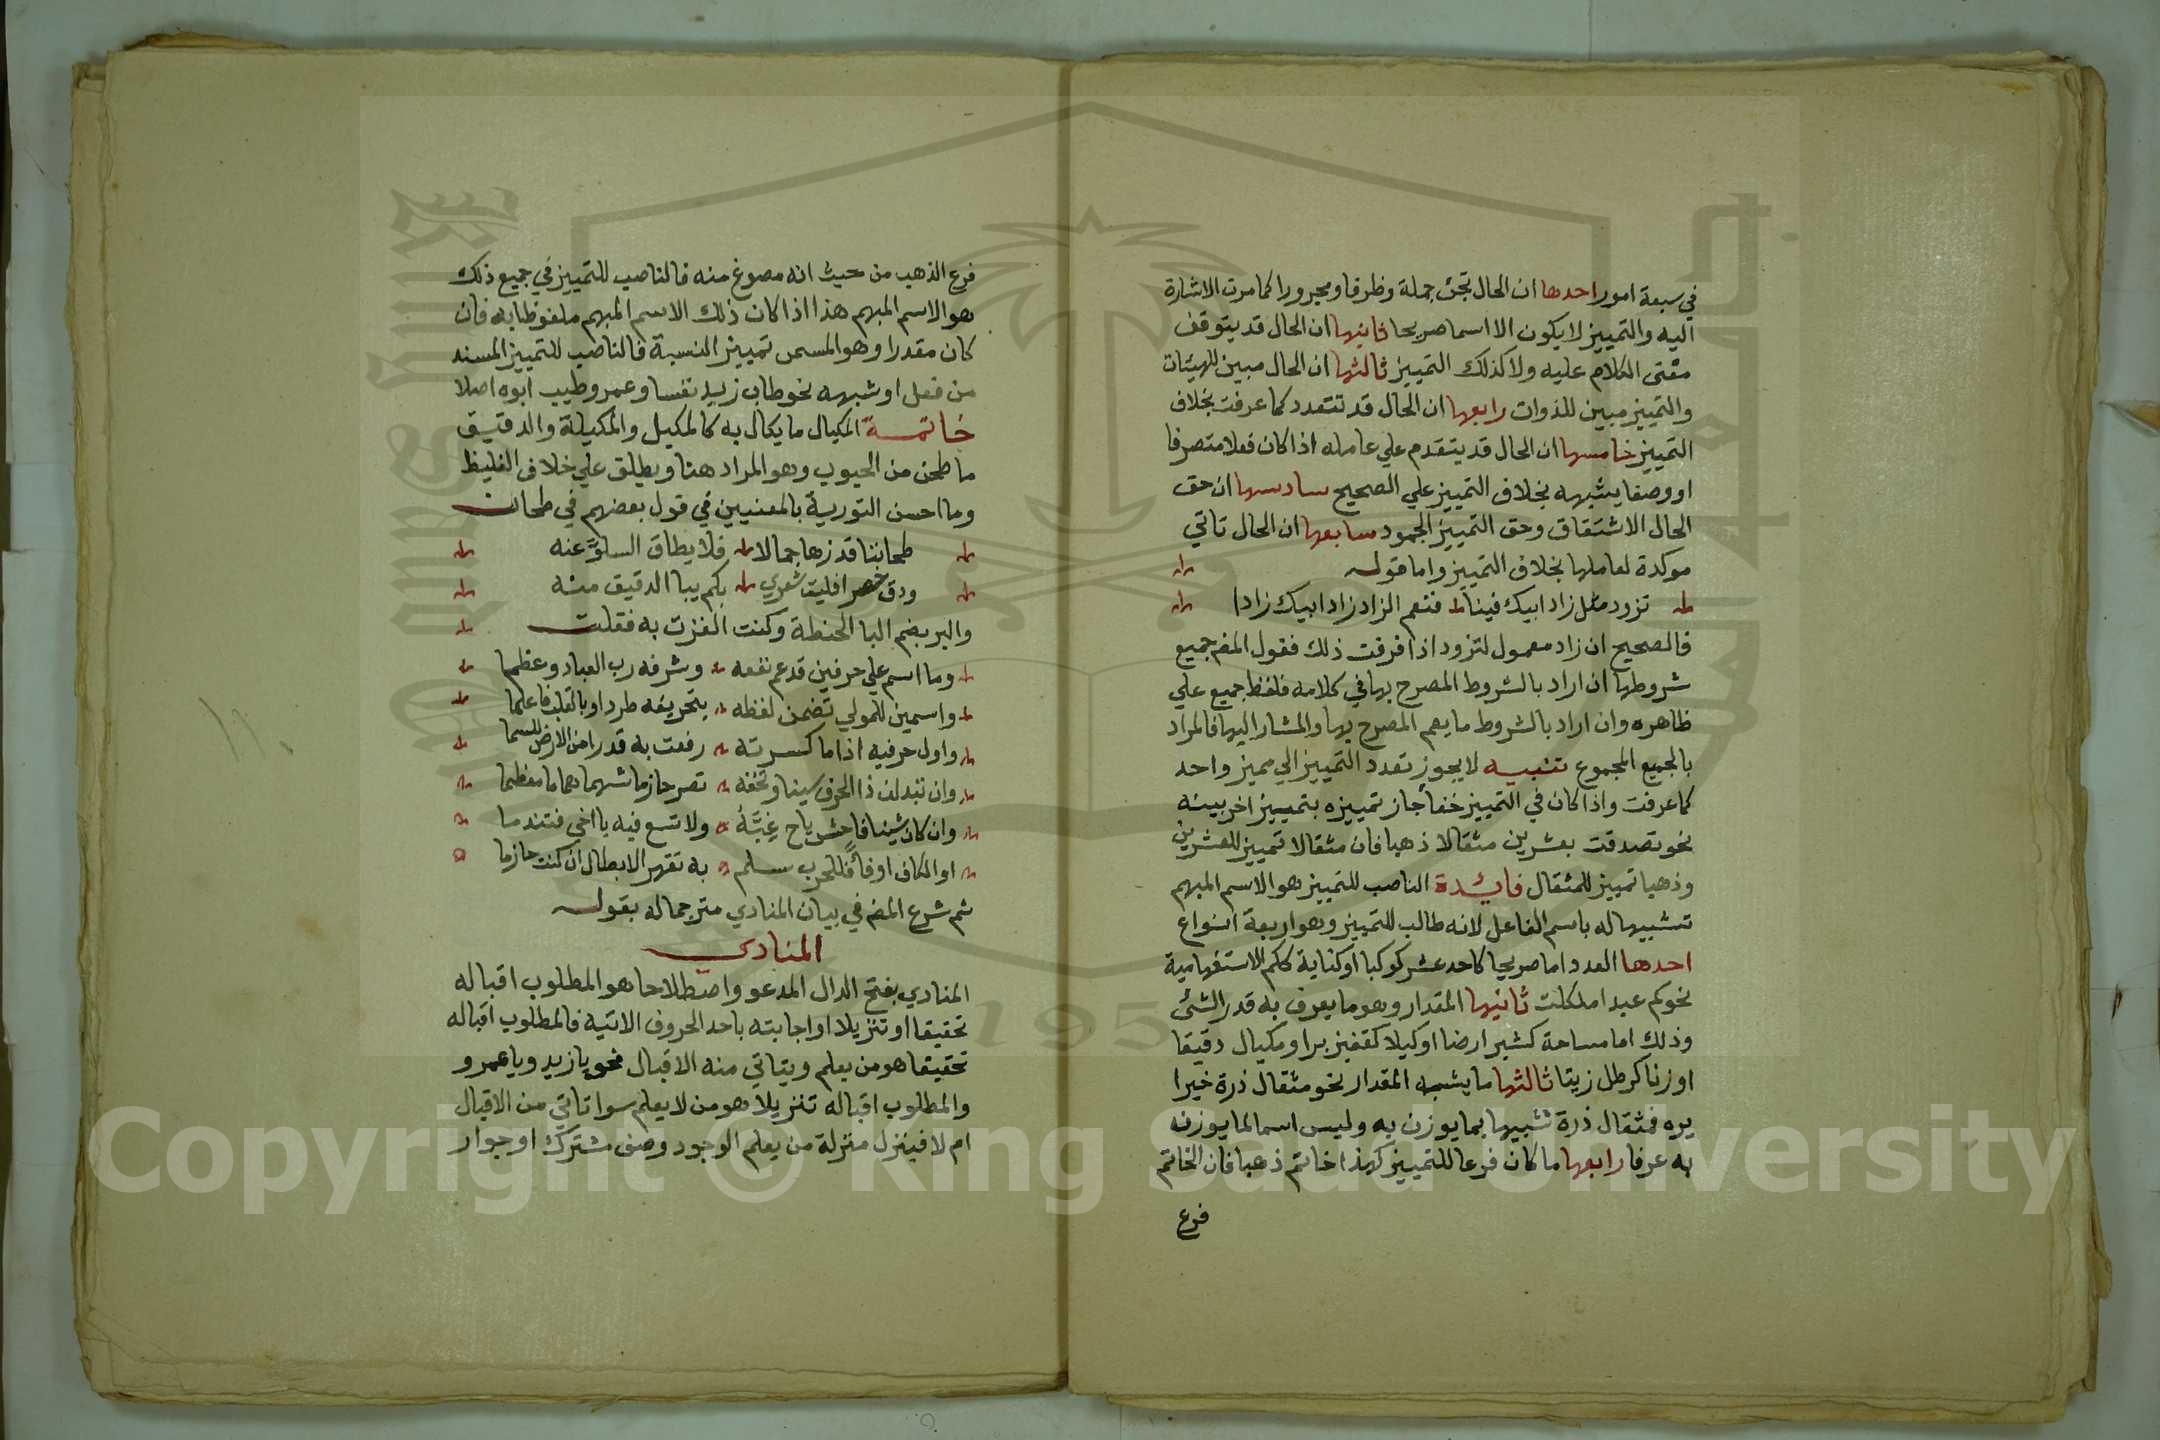 في سبعة امور احدها ان الحال تجئ جملة وظرفا ومجرورا كما مرت الاشارة
اليه والتمييز لا يكون الا اسما صريحا ثانيها ان الحال قد يتوقف
معنى الكلام عليه ولا كذلك التمييز ثالثها ان الحال مبين للهيئات
والتمييز مبين للذوات رابعها ان الحال قد تتعدد كما عرفت بخلاف
التمييز خامسها ان الحال قد يتقدم علي عامله اذا كان فعلا متصرفا
او وصفا يشبهه بخلاف التمييز علي الصحيح سادسها ان حق
الحال الاشتقاق وحق التمييز الجمود سابعها ان الحال تاتي
موكدة لعاملها بخلاف التمييز واما قول
تزود مثل زاد ابيك فينا فنعم الزاد زاد ابيك زادا
فالصحيح ان زاد معمول لتزود اذا فرقت ذلك فقول المص جميع
شروطها ان اراد بالشروط المصرح بها في كلامه فلفظ جميع علي
ظاهره وان اراد بالشروط ما يعم المصرح بها والمشار اليها فالمراد
بالجميع المجموع تنبيه لا يجوز تعدد التمييز الي مميز واحد
كما عرفت واذا كان في التمييز خفا جاز تمييزه بتمييز اخر يبينه
نحو تصدقت بعشرين مثقالا ذهبا فان مثقالا تمييز للعشرين
وذهبا تمييز للمثقال فايدة الناصب للتمييز هو الاسم المبهم
تشبيها له باسم الفاعل لانه طالب للتمييز وهو اربعة انواع
احدها العدد اما صريحا كاحد عشر كوكبا او كناية ككم الاستفهامية
نحو كم عبدا ملكت ثانيها المقدار وهو ما يعرف به قدر الشئ
وذلك اما مساحة كشبر ارضا او كيلا كقفيز برا ومكيال دقيقا
او زنا كرطل زيتا ثالثها ما يشبه المقدار نحو مثقال ذرة خيرا
يره فمثقال ذرة تشبيها بما يوزن به وليس اسما لما يوزن
به عرفا رابعها ما كان فرعا للتمييز كهذا خاتم ذهبا فان الخاتم
فرع
فرع الذهب من حيث انه مصوغ منه فالناصب للتمييز في جميع ذلك
هو الاسم المبهم هذا اذا كان ذلك الاسم المبهم ملفوظا به فان
كان مقدرا وهو المسمى تمييز النسبة فالناصب للتمييز المسند
من فعل او شبهه نحو طاب زيد نفسا وعمرو طيب ابوه اصلا
خاتمة المكيال ما يكال به كالمكيل والمكيلة والدقيق
ما طحن من الحبوب وهو المراد هنا ويطلق علي خلاف الغليظ
وما احسن التورية بالمعنيين في قول بعضهم في طحان
طحاننا قد زها جمالا فلا يطاق السلو عنه
ودق خصرا فليت شعري بكم يباع الدقيق منه
والبر بضم البا الحنطة وكنت الغزت به فقلت
وما اسم علي حرفين قد عم نفعه وشرفه رب العباد وعظما
واسمين للمولي تضمن لفظه بتحريفه طردا وبالقلب فاعلما
واول حرفيه اذا ما كسرته رفعت به قدرا من الارض للسما
وان تبدلن ذا الحرف سينا وتخفه تصر حازما شهما هماما معظما
وان كان شينا فاحش ياح غبه ولا تسع فيه يا اخي فتندما
او الكاف او فا فللحرب سلم به تقهر الابطال ان كنت حازما
ثم شرع المص في بيان المنادي مترجما له بقول
المنادي
المنادي بفتح الدال المدعو واصطلاحا هو المطلوب اقباله
تحقيقا او تنزيلا او اجابته باحد الحروف الاتية فالمطلوب اقباله
تحقيقا هو من يعلم ويتاتي منه الاقبال نحو يا زيد ويا عمرو
والمطلوب اقباله تنزيلا هو من لا يعلم سوا تاتي من الاقبال
ام لا فينزل منزلة من يعلم الوجود وصف مشترك او جوار
Copyright © King Saud University
1957